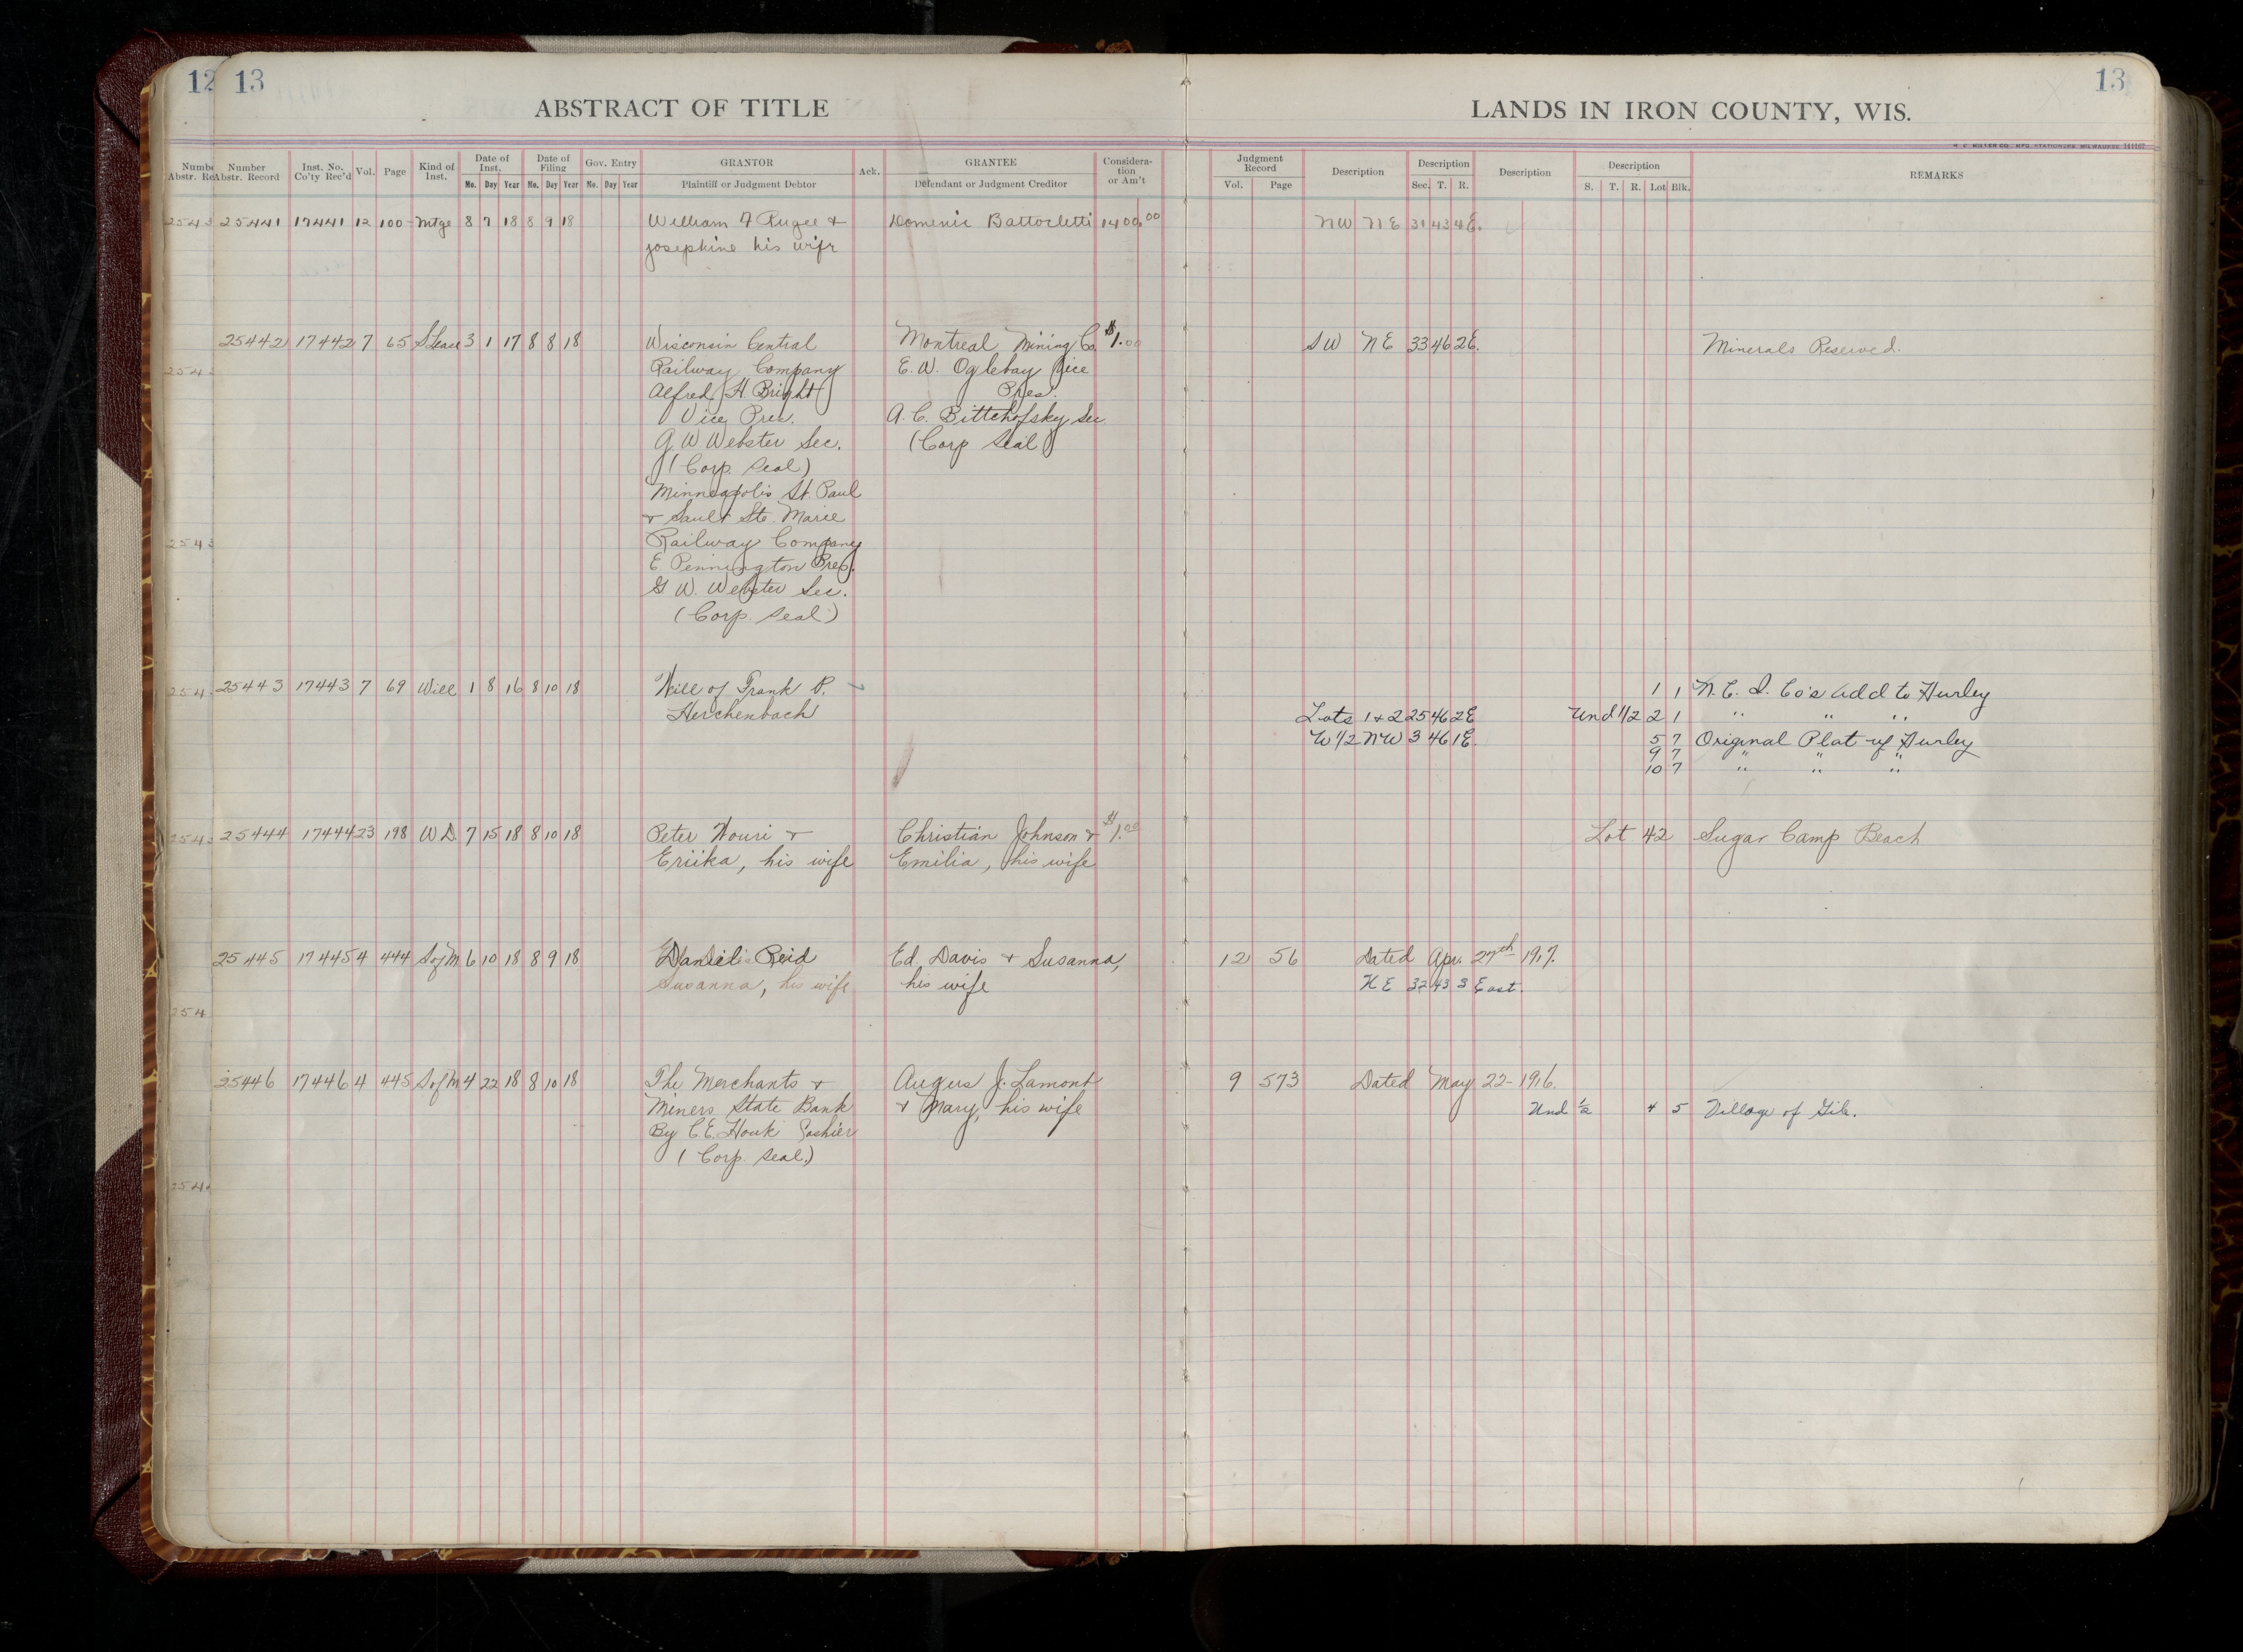 12 13
ABSTRACT OF TITLE
LANDS IN IRON COUNTY, WIS.
13
Number Abstr. Record | Inst. No. Co'ty Rec'd | Vol. | Page | Kind of Inst. | Date of Inst. Mo. Day Year | Date of Filing No. Day Year | Gov. Entry No. Day Year | GRANTOR Plaintiff or Judgment Debtor | Ack. | GRANTEE Defendant or Judgment Creditor | Considera-tion or Am't | Judgment Record Vol. Page | Description | Description Sec. T. R. | Description | Description S. T. R. Lot Blk. | REMARKS
25441 17441 12 100 Mtge 8 7 18 8 9 18 William F Rugee + Domenic Battocletti 1400.00 NW NE 31 43 4E.
Josephine his wife
25442 17442 7 65 3 1 17 8 8 18 Wisconsin Central Montreal Mining Co. $1.00 SW NE 33 46 2E. Minerals Reserved.
Railway Company E. W. Oglebay Vice
Alfred H. Bright Pres.
Vice Pres. A. C. Bittchofsky Sec
G. W Webster Sec. (Corp Seal)
(Corp. Seal)
Minneapolis St. Paul
+ Sault Ste. Marie
Railway Company
E Pennington Pres.
G W. Webster Sec.
(Corp. Seal)
25443 17443 7 69 Will 1 8 16 8 10 18 Will of Frank P. 1 1 N. C. I. Co's Add to Hurley
Herchenbach Lots 1+2 25 46 2E Und 1/2 2 1 " " "
W 1/2 NW 3 46 1E. 5 7 Original Plat of Hurley
9 7 " " "
10 7 " " "
25444 17444 23 198 W D. 7 15 18 8 10 18 Peter Wouri + Christian Johnson + $1.00 Lot 42 Sugar Camp Beach
Eriika, his wife Emilia, his wife
25445 17445 4 444 S of M 6 10 18 8 9 18 Daniel Reid Ed. Davis + Susanna, 12 56 Dated Apr. 27th 1917.
Susanna, his wife his wife NE 32 43 3 East.
25446 17446 4 445 S of M 4 22 18 8 10 18 The Merchants + Angus J. Lamont 9 573 Dated May 22-1916.
Miners State Bank + Mary, his wife Und 1/2 4 5 Village of Gile.
By C. E. Houk Cashier
(Corp. Seal.)